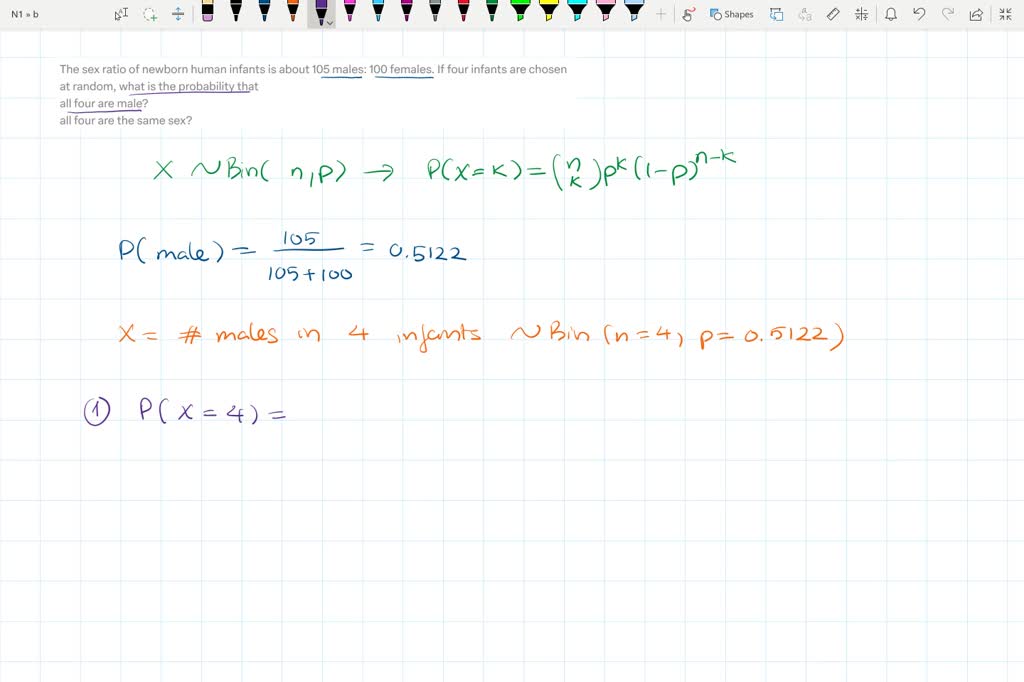 N1 » b
Shapes
The sex ratio of newborn human infants is about 105 males: 100 females. If four infants are chosen
at random, what is the probability that
all four are male?
all four are the same sex?
X ~ Bin( n, p) → P(X=K) = (n K) p^K (1-p)^n-K
P( male) = 105 / 105+100 = 0.5122
X = # males in 4 infants ~ Bin (n=4, p= 0.5122)
① P( X = 4) =